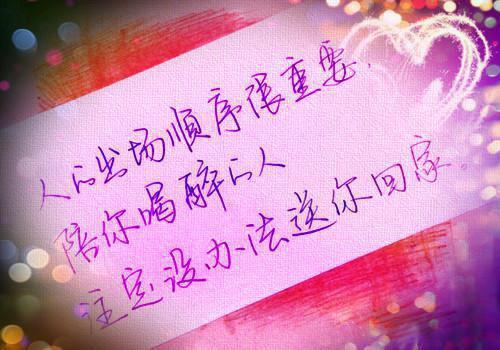 人的出场順序很重要，
陪你喝醉的人
注定没办法送你回家。